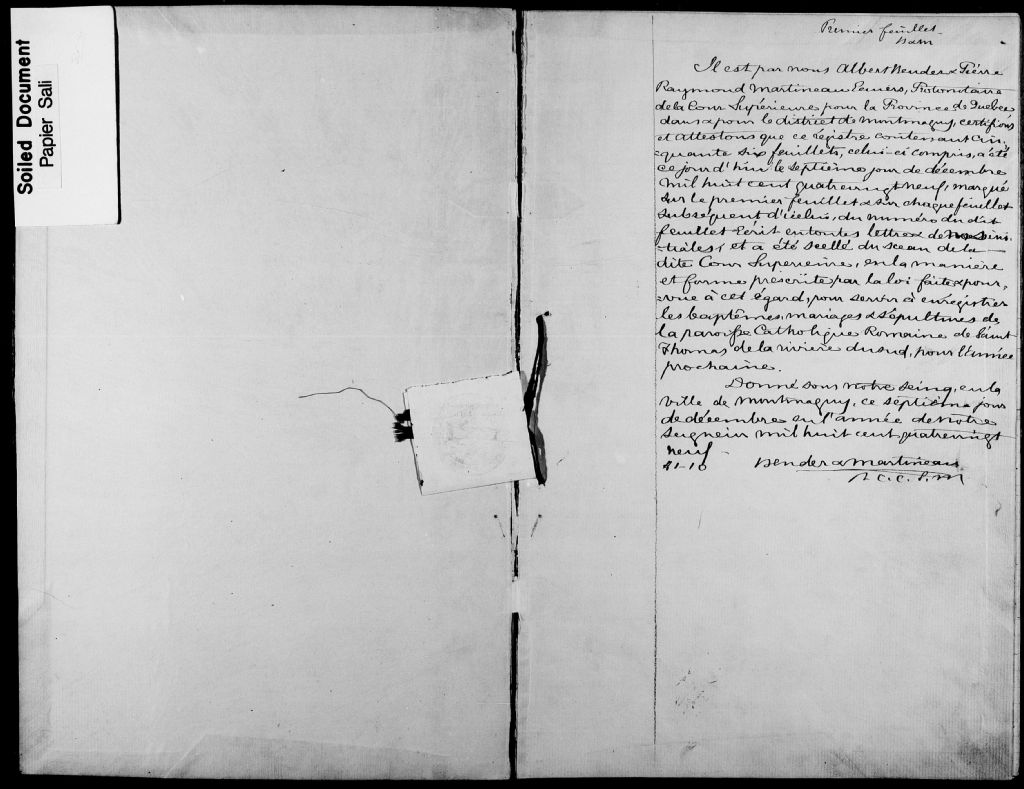 Soiled Document
Papier Sali
Premier feuillet
B&M
Il est par nous Albert Bender & Pierre
Raymond Martineau Ecuiers, Protonotaire
de la Cour Supérieure pour la Province de Quebec
dans & pour le district de Montmagny, certifions
et attestons que ce régistre contenant Cin,
quante six feuillets, celui-ci compris, a été
ce jourd'hui le septième jour de décembre
Mil huit cent quatrevingt neuf, marqué
sur le premier feuillet & sur chaque feuillet
subséquent d'icelui, du numéro du dit
feuillet Ecrit en toutes lettres & de nos ini.
tiales, et a été scellé du sceau de la
dite Cour Superieure, en la manière
et forme prescrite par la loi faite & pour,
vue à cet égard, pour servir à enregistrer
les baptêmes, mariages & sépultures de
la paroisse Catholique Romaine de Saint
Thomas de la rivière du sud, pour l'année
prochaine.
Donné sous notre seing, en la
ville de Montmagny, ce septième jour
de décembre en l'année de Notre
Seigneur Mil huit cent quatrevingt
neuf
Bender & Martineau
P.C.S.M